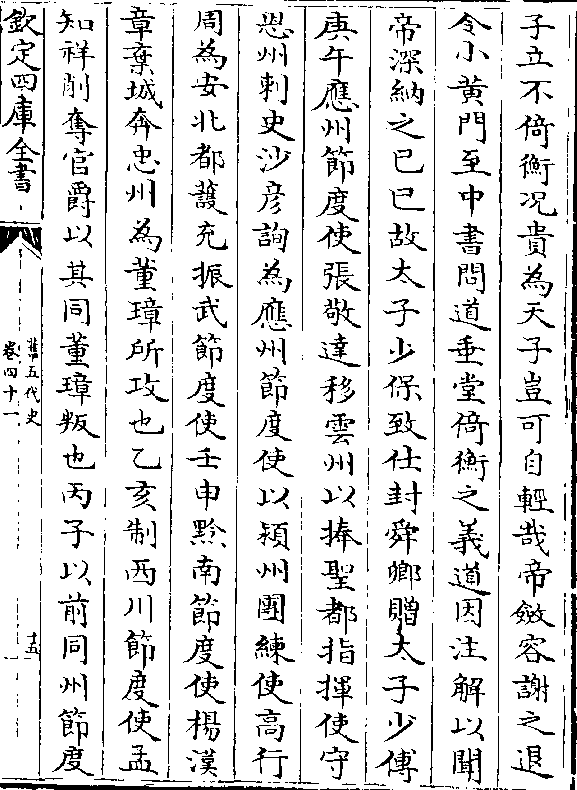 子立不倚衡况貴為天子豈可自輕哉帝斂容謝之退
令小黄門至中書問道垂堂倚衡之義道因注解以聞
帝深納之己巳故太子少保致仕封舜卿贈太子少傅
庚午應州節度使張敬達移雲州以捧聖都指揮使守
恩州刺史沙彦詢為應州節度使以潁州團練使高行
周為安北都䕶充振武節度使壬申黔南節度使楊漢
章棄城奔忠州為董璋所攻也乙亥制西川節度使孟
知祥削奪官爵以其同董璋叛也丙子以前同州節度
欽定四庫全書
舊五代史
卷四十一
十五